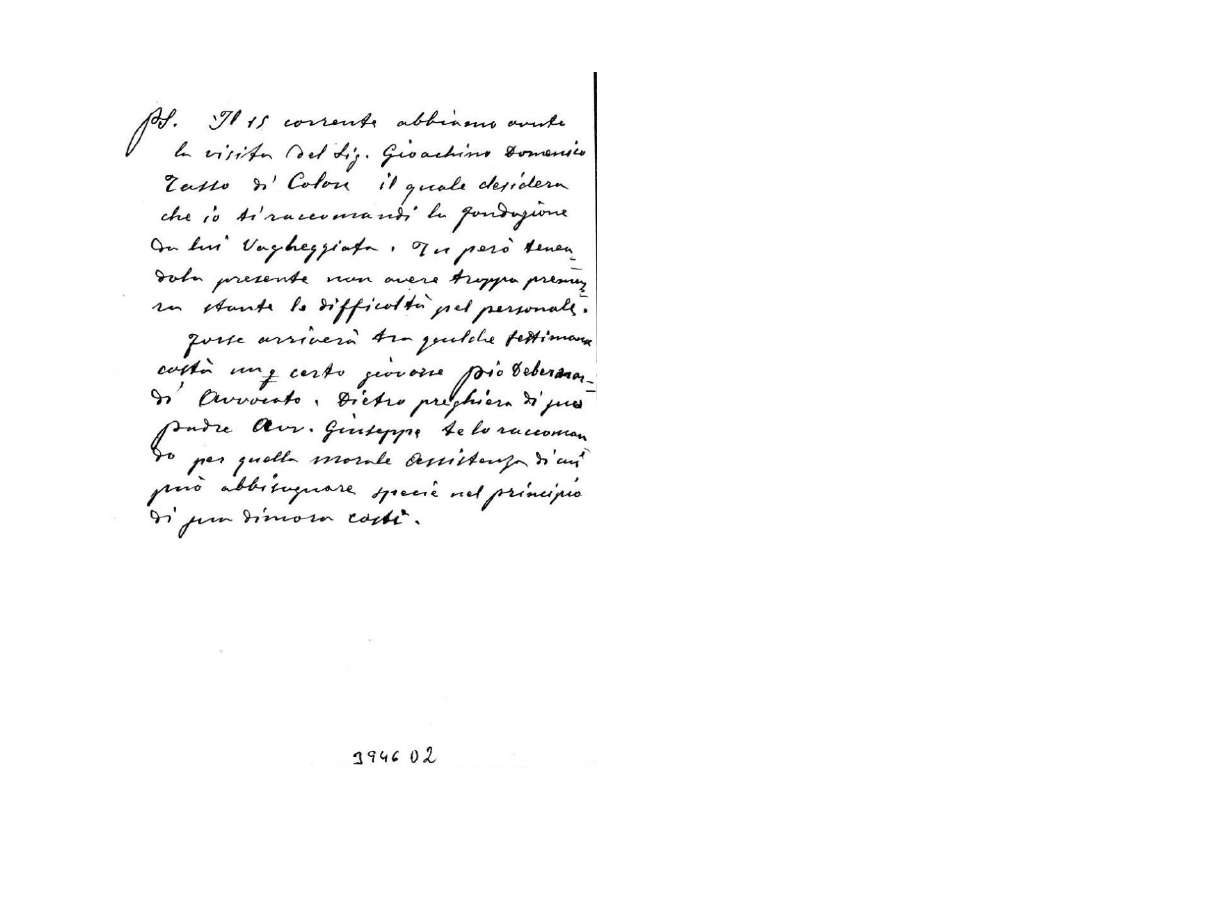 PS. Il 15 corrente abbiamo avuto
la visita del Sig. Gioachino Domenico
Tasso di Colon il quale desidera
che io ti raccomandi la fondazione
da lui vagheggiata. Tu però tenen_
dola presente non avere troppa premu_
ra stante le difficoltà pel personale.
Forse arriverà tra qualche settimana
costà un certo giovane Pio Debernar_
di Avvocato. Dietro preghiera di suo
padre Avv. Giuseppe te lo raccoman
do per quella morale assistenza di cui
può abbisognare specie nel principio
di sua dimora costì.
3946 D2